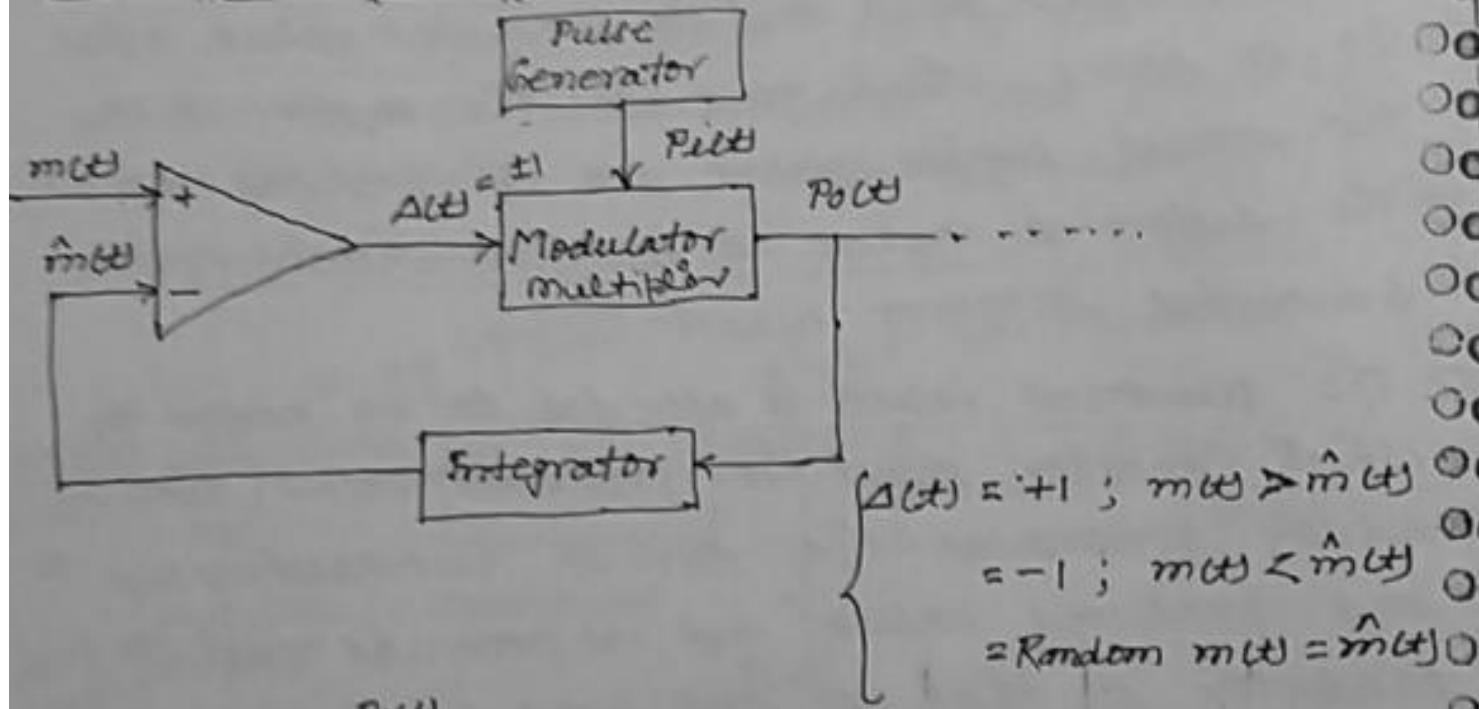 Pulse
Generator
m(t)
Pi(t)
Δ(t) = ±1
Po(t)
+
m̂(t)
Modulator
multiplier
−
Integrator
Δ(t) = +1 ; m(t) > m̂(t)
= -1 ; m(t) < m̂(t)
= Random m(t) = m̂(t)